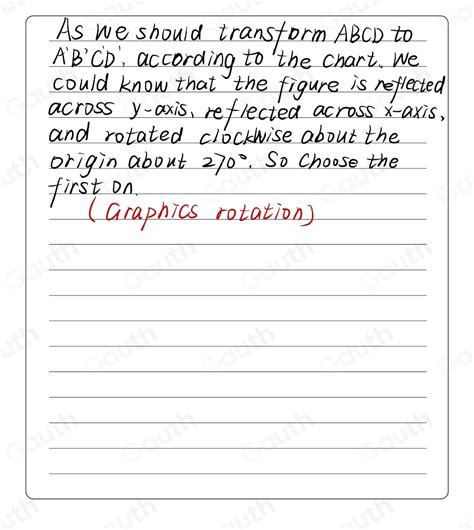 As we should transform ABCD to
A'B'C'D', according to the chart. We
could know that the figure is reflected
across y-axis, reflected across x-axis,
and rotated clockwise about the
origin about 270°. So choose the
first on.
(Graphics rotation)